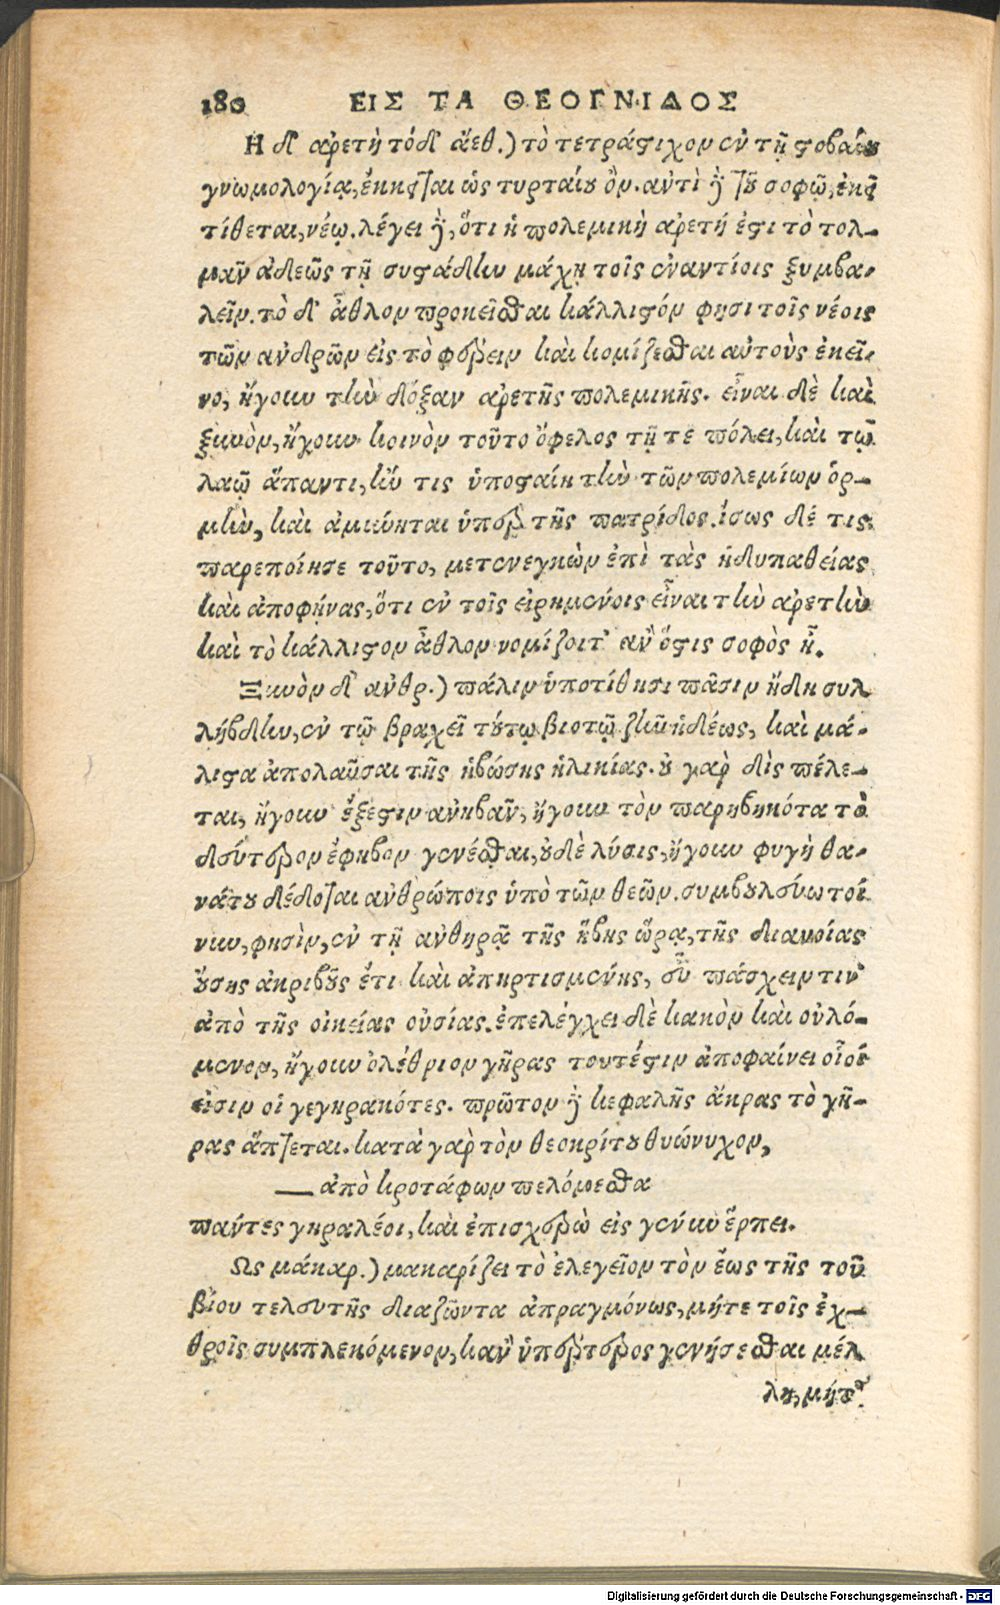 180 ΕΙΣ ΤΑ ΘΕΟΓΝΙΔΟΣ
Η δ' ἀρετὴ τόδ' ἄεθ.) τὸ τετράστιχον ἐν τῇ στοβαίου
γνωμολογίᾳ, ἔκκειται ὡς τυρταίου ὄν. ἀντὶ γὰρ τοῦ σοφῷ, ἐκεῖ
τίθεται, νέῳ. λέγει γὰρ, ὅτι ἡ πολεμικὴ ἀρετή ἐστι τὸ τολ-
μᾶν ἀδεῶς τῇ συστάδην μάχῃ τοῖς ἐναντίοις ξυμβα-
λεῖν. τὸ δ' ἆθλον προκεῖσθαι κάλλιστόν φησι τοῖς νέοις
τῶν ἀνδρῶν εἰς τὸ φέρειν καὶ κομίζεσθαι αὐτοὺς ἐκεῖ-
νο, ἤγουν τὴν δόξαν ἀρετῆς πολεμικῆς. εἶναι δὲ καὶ
ξυνὸν, ἤγουν κοινὸν τοῦτο ὄφελος τῇ τε πόλει, καὶ τῷ
λαῷ ἅπαντι, κἄν τις ὑποσταίη τὴν τῶν πολεμίων ὁρ-
μὴν, καὶ ἀμύνηται ὑπὲρ τῆς πατρίδος. ἴσως δέ τις
παρεποίησε τοῦτο, μετενεγκὼν ἐπὶ τὰς ἡδυπαθείας
καὶ ἀποφήνας, ὅτι ἐν τοῖς εἰρημένοις εἶναι τὴν ἀρετὴν
καὶ τὸ κάλλιστον ἆθλον νομίζοιτ' ἂν ὅστις σοφὸς ᾖ.
Ξυνὸν δ' ἀνθρ.) πάλιν ὑποτίθησι πᾶσιν ἤδη συλ
λήβδην, ἐν τῷ βραχεῖ τούτῳ βιοτῷ ζῆν ἡδέως, καὶ μά-
λιστα ἀπολαῦσαι τῆς ἡβώσης ἡλικίας. οὐ γὰρ δὶς πέλε-
ται, ἤγουν ἔξεστιν ἀνηβᾶν, ἤγουν τὸν παρηβηκότα τὸ
δεύτερον ἔφηβον γενέσθαι, οὐδὲ λύσις, ἤγουν φυγὴ θα-
νάτου δέδοται ἀνθρώποις ὑπὸ τῶν θεῶν. συμβουλεύω τοί
νυν, φησὶν, ἐν τῇ ἀνθηρᾷ τῆς ἥβης ὥρᾳ, τῆς διανοίας
οὔσης ἀκριβοῦς ἔτι καὶ ἀπηρτισμένης, εὖ πάσχειν τιν'
ἀπὸ τῆς οἰκείας οὐσίας. ἐπελέγχει δὲ κακὸν καὶ οὐλό-
μενον, ἤγουν ὀλέθριον γῆρας τουτέστιν ἀποφαίνει οἷοί
εἰσιν οἱ γεγηρακότες. πρῶτον γὰρ κεφαλῆς ἄκρας τὸ γῆ-
ρας ἅπτεται. κατὰ γὰρ τὸν θεοκρίτου θυώνυχον,
— ἀπὸ κροτάφων πελόμεσθα
πάντες γηραλέοι, καὶ ἐπισχερὼ εἰς γένυν ἕρπει.
Ως μάκαρ.) μακαρίζει τὸ ἐλεγεῖον τὸν ἕως τῆς τοῦ
βίου τελευτῆς διαζῶντα ἀπραγμόνως, μήτε τοῖς ἐχ-
θροῖς συμπλεκόμενον, κἂν ὑπέρτερος γενήσεσθαι μέλ
λῃ, μήτε
Digitalisierung gefördert durch die Deutsche Forschungsgemeinschaft - DFG